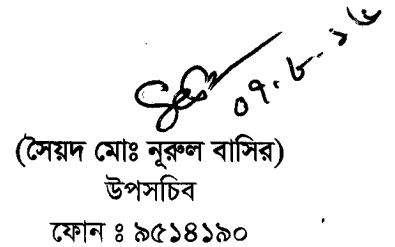 ০৭.৮.১৬
(সৈয়দ মোঃ নূরুল বাসির)
উপসচিব
ফোন ঃ ৯৫১৪১৯০